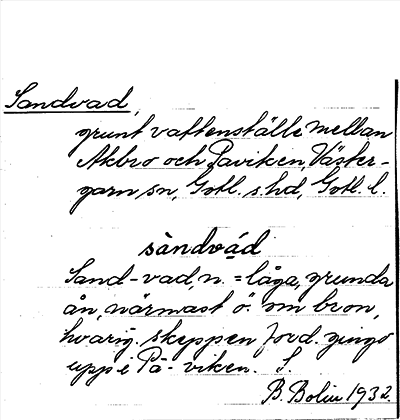 Sandvad,
grunt vattenställe mellan
Akbro och Paviken, Väster-
garn sn, Gotl. s. hd, Gotl. l.
sàndvạd
Sand-vad, n. = låga, grunda
ån, närmast ö. om bron,
hvarig. skeppen ford. gingo
upp i Pa-viken. S.
B. Bolin 1932.